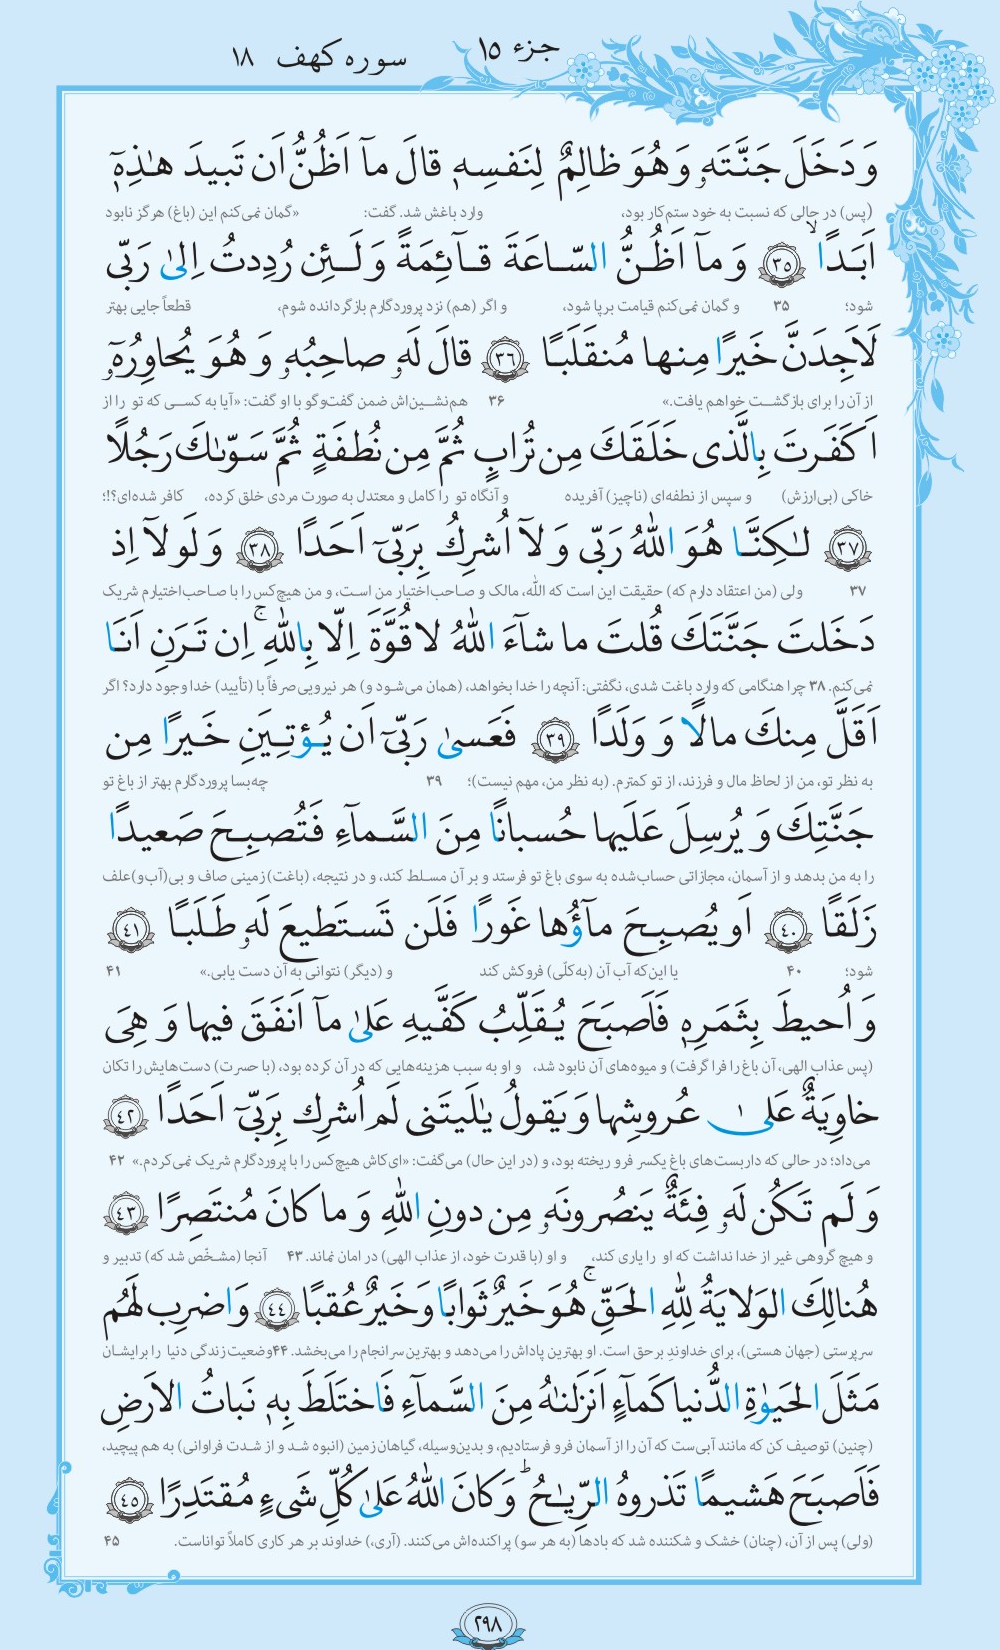 جزء ۱۵
سوره کهف ۱۸
وَ دَخَلَ جَنَّتَهٗ وَ هُوَ ظالِمٌ لِنَفسِهٖ قالَ مآ اَظُنُّ اَن تَبيدَ هٰذِهٖٓ
(پس) در حالی که نسبت به خود ستم‌کار بود، وارد باغش شد. گفت: «گمان نمی‌کنم این (باغ) هرگز نابود
اَبَدًا ۙ ﴿٣٥﴾ وَ مآ اَظُنُّ السّاعَةَ قآئِمَةً وَ لَئِن رُدِدتُ اِلىٰ رَبّى
شود؛ ۳۵ و گمان نمی‌کنم قیامت برپا شود، و اگر (هم) نزد پروردگارم بازگردانده شوم، قطعاً جایی بهتر
لَاَجِدَنَّ خَيرًا مِنها مُنقَلَبًا ﴿٣٦﴾ قالَ لَهٗ صاحِبُهٗ وَ هُوَ يُحاوِرُهٗٓ
از آن را برای بازگشت خواهم یافت.» ۳۶ هم‌نشین‌اش ضمن گفت‌وگو با او گفت: «آیا به کسی که تو را از
اَكَفَرتَ بِالَّذى خَلَقَكَ مِن تُرابٍ ثُمَّ مِن نُطفَةٍ ثُمَّ سَوّٰىكَ رَجُلًا
خاکی (بی‌ارزش) و سپس از نطفه‌ای (ناچیز) آفریده و آنگاه تو را کامل و معتدل به صورت مردی خلق کرده، کافر شده‌ای؟!؛
﴿٣٧﴾ لٰكِنَّا هُوَ اللّٰهُ رَبّى وَ لآ اُشرِكُ بِرَبّىٓ اَحَدًا ﴿٣٨﴾ وَ لَولآ اِذ
۳۷ ولی (من اعتقاد دارم که) حقیقت این است که اللّٰه، مالک و صاحب‌اختیار من است، و من هیچ‌کس را با صاحب‌اختیارم شریک
دَخَلتَ جَنَّتَكَ قُلتَ ما شآءَ اللّٰهُ لا قُوَّةَ اِلّا بِاللّٰهِ ۚ اِن تَرَنِ اَنَا
نمی‌کنم. ۳۸ چرا هنگامی که وارد باغت شدی، نگفتی: آنچه را خدا بخواهد، (همان می‌شود و) هر نیرویی صرفاً با (تأیید) خدا وجود دارد؟ اگر
اَقَلَّ مِنكَ مالًا وَ وَلَدًا ﴿٣٩﴾ فَعَسىٰ رَبّىٓ اَن يُؤتِيَنِ خَيرًا مِن
به نظر تو، من از لحاظ مال و فرزند، از تو کمترم. (به نظر من، مهم نیست)؛ ۳۹ چه‌بسا پروردگارم بهتر از باغ تو
جَنَّتِكَ وَ يُرسِلَ عَلَيها حُسبانًا مِنَ السَّمآءِ فَتُصبِحَ صَعيدًا
را به من بدهد و از آسمان، مجازاتی حساب‌شده به سوی باغ تو فرستد و بر آن مسلط کند، و در نتیجه، (باغت) زمینی صاف و بی(آب‌و)علف
زَلَقًا ﴿٤٠﴾ اَو يُصبِحَ مآؤُها غَورًا فَلَن تَستَطيعَ لَهٗ طَلَبًا ﴿٤١﴾
شود؛ ۴۰ یا این‌که آب آن (به‌کلّی) فروکش کند و (دیگر) نتوانی به آن دست یابی.» ۴۱
وَ اُحيطَ بِثَمَرِهٖ فَاَصبَحَ يُقَلِّبُ كَفَّيهِ عَلىٰ مآ اَنفَقَ فيها وَ هِىَ
(پس عذاب الهی، آن باغ را فرا گرفت) و میوه‌های آن نابود شد، و او به سبب هزینه‌هایی که در آن کرده بود، (با حسرت) دست‌هایش را تکان
خاوِيَةٌ عَلىٰ عُروشِها وَ يَقولُ يٰلَيتَنى لَم اُشرِك بِرَبّىٓ اَحَدًا ﴿٤٢﴾
می‌داد؛ در حالی که داربست‌های باغ یکسر فرو ریخته بود، و (در این حال) می‌گفت: «ای‌کاش هیچ‌کس را با پروردگارم شریک نمی‌کردم.» ۴۲
وَ لَم تَكُن لَهٗ فِئَةٌ يَنصُرونَهٗ مِن دونِ اللّٰهِ وَ ما كانَ مُنتَصِرًا ﴿٤٣﴾
و هیچ گروهی غیر از خدا نداشت که او را یاری کند، و او (با قدرت خود، از عذاب الهی) در امان نماند. ۴۳ آنجا (مشخّص شد که) تدبیر و
هُنالِكَ الوَلايَةُ لِلّٰهِ الحَقِّ ۚ هُوَ خَيرٌ ثَوابًا وَ خَيرٌ عُقبًا ﴿٤٤﴾ وَ اضرِب لَهُم
سرپرستی (جهان هستی)، برای خداوندِ برحق است. او بهترین پاداش را می‌دهد و بهترین سرانجام را می‌بخشد. ۴۴ وضعیت زندگی دنیا را برایشان
مَثَلَ الحَيوٰةِ الدُّنيا كَمآءٍ اَنزَلنٰهُ مِنَ السَّمآءِ فَاختَلَطَ بِهٖ نَباتُ الاَرضِ
(چنین) توصیف کن که مانند آبی‌ست که آن را از آسمان فرو فرستادیم، و بدین‌وسیله، گیاهان زمین (انبوه شد و از شدت فراوانی) به هم پیچید،
فَاَصبَحَ هَشيمًا تَذروهُ الرِّيٰحُ ؕ وَ كانَ اللّٰهُ عَلىٰ كُلِّ شَىءٍ مُقتَدِرًا ﴿٤٥﴾
(ولی) پس از آن، (چنان) خشک و شکننده شد که بادها (به هر سو) پراکنده‌اش می‌کنند. (آری،) خداوند بر هر کاری کاملاً تواناست. ۴۵
۲۹۸